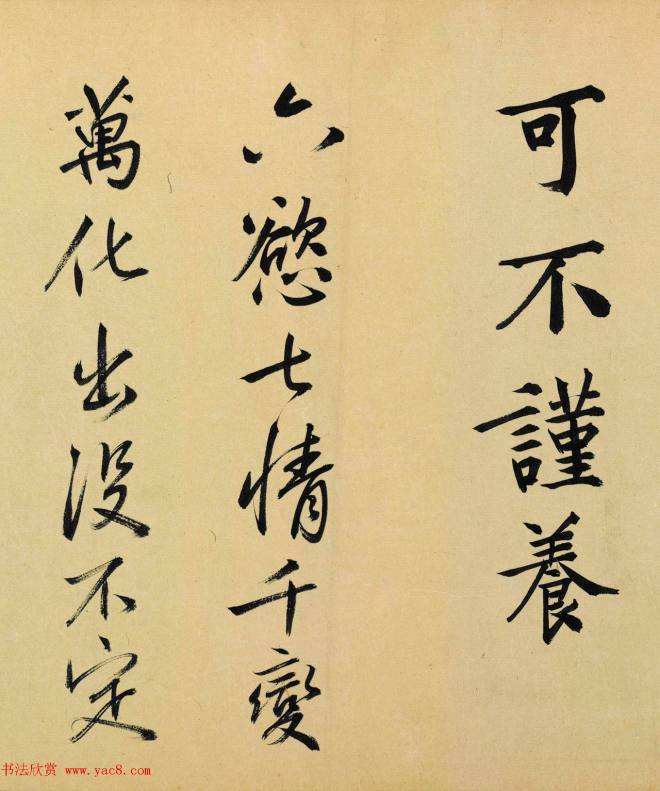 可不謹養
六慾七情千變
萬化出没不定
书法欣赏 www.yac8.com